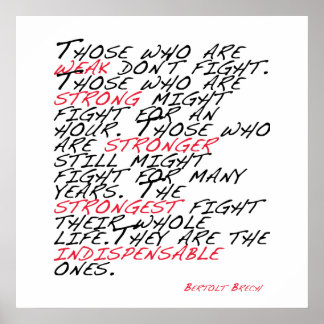 Those who are
weak don't fight.
Those who are
strong might
fight for an
hour. Those who
are stronger
still might
fight for many
years. The
strongest fight
their whole
life.They are the
indispensable
ones.
Bertolt Brech